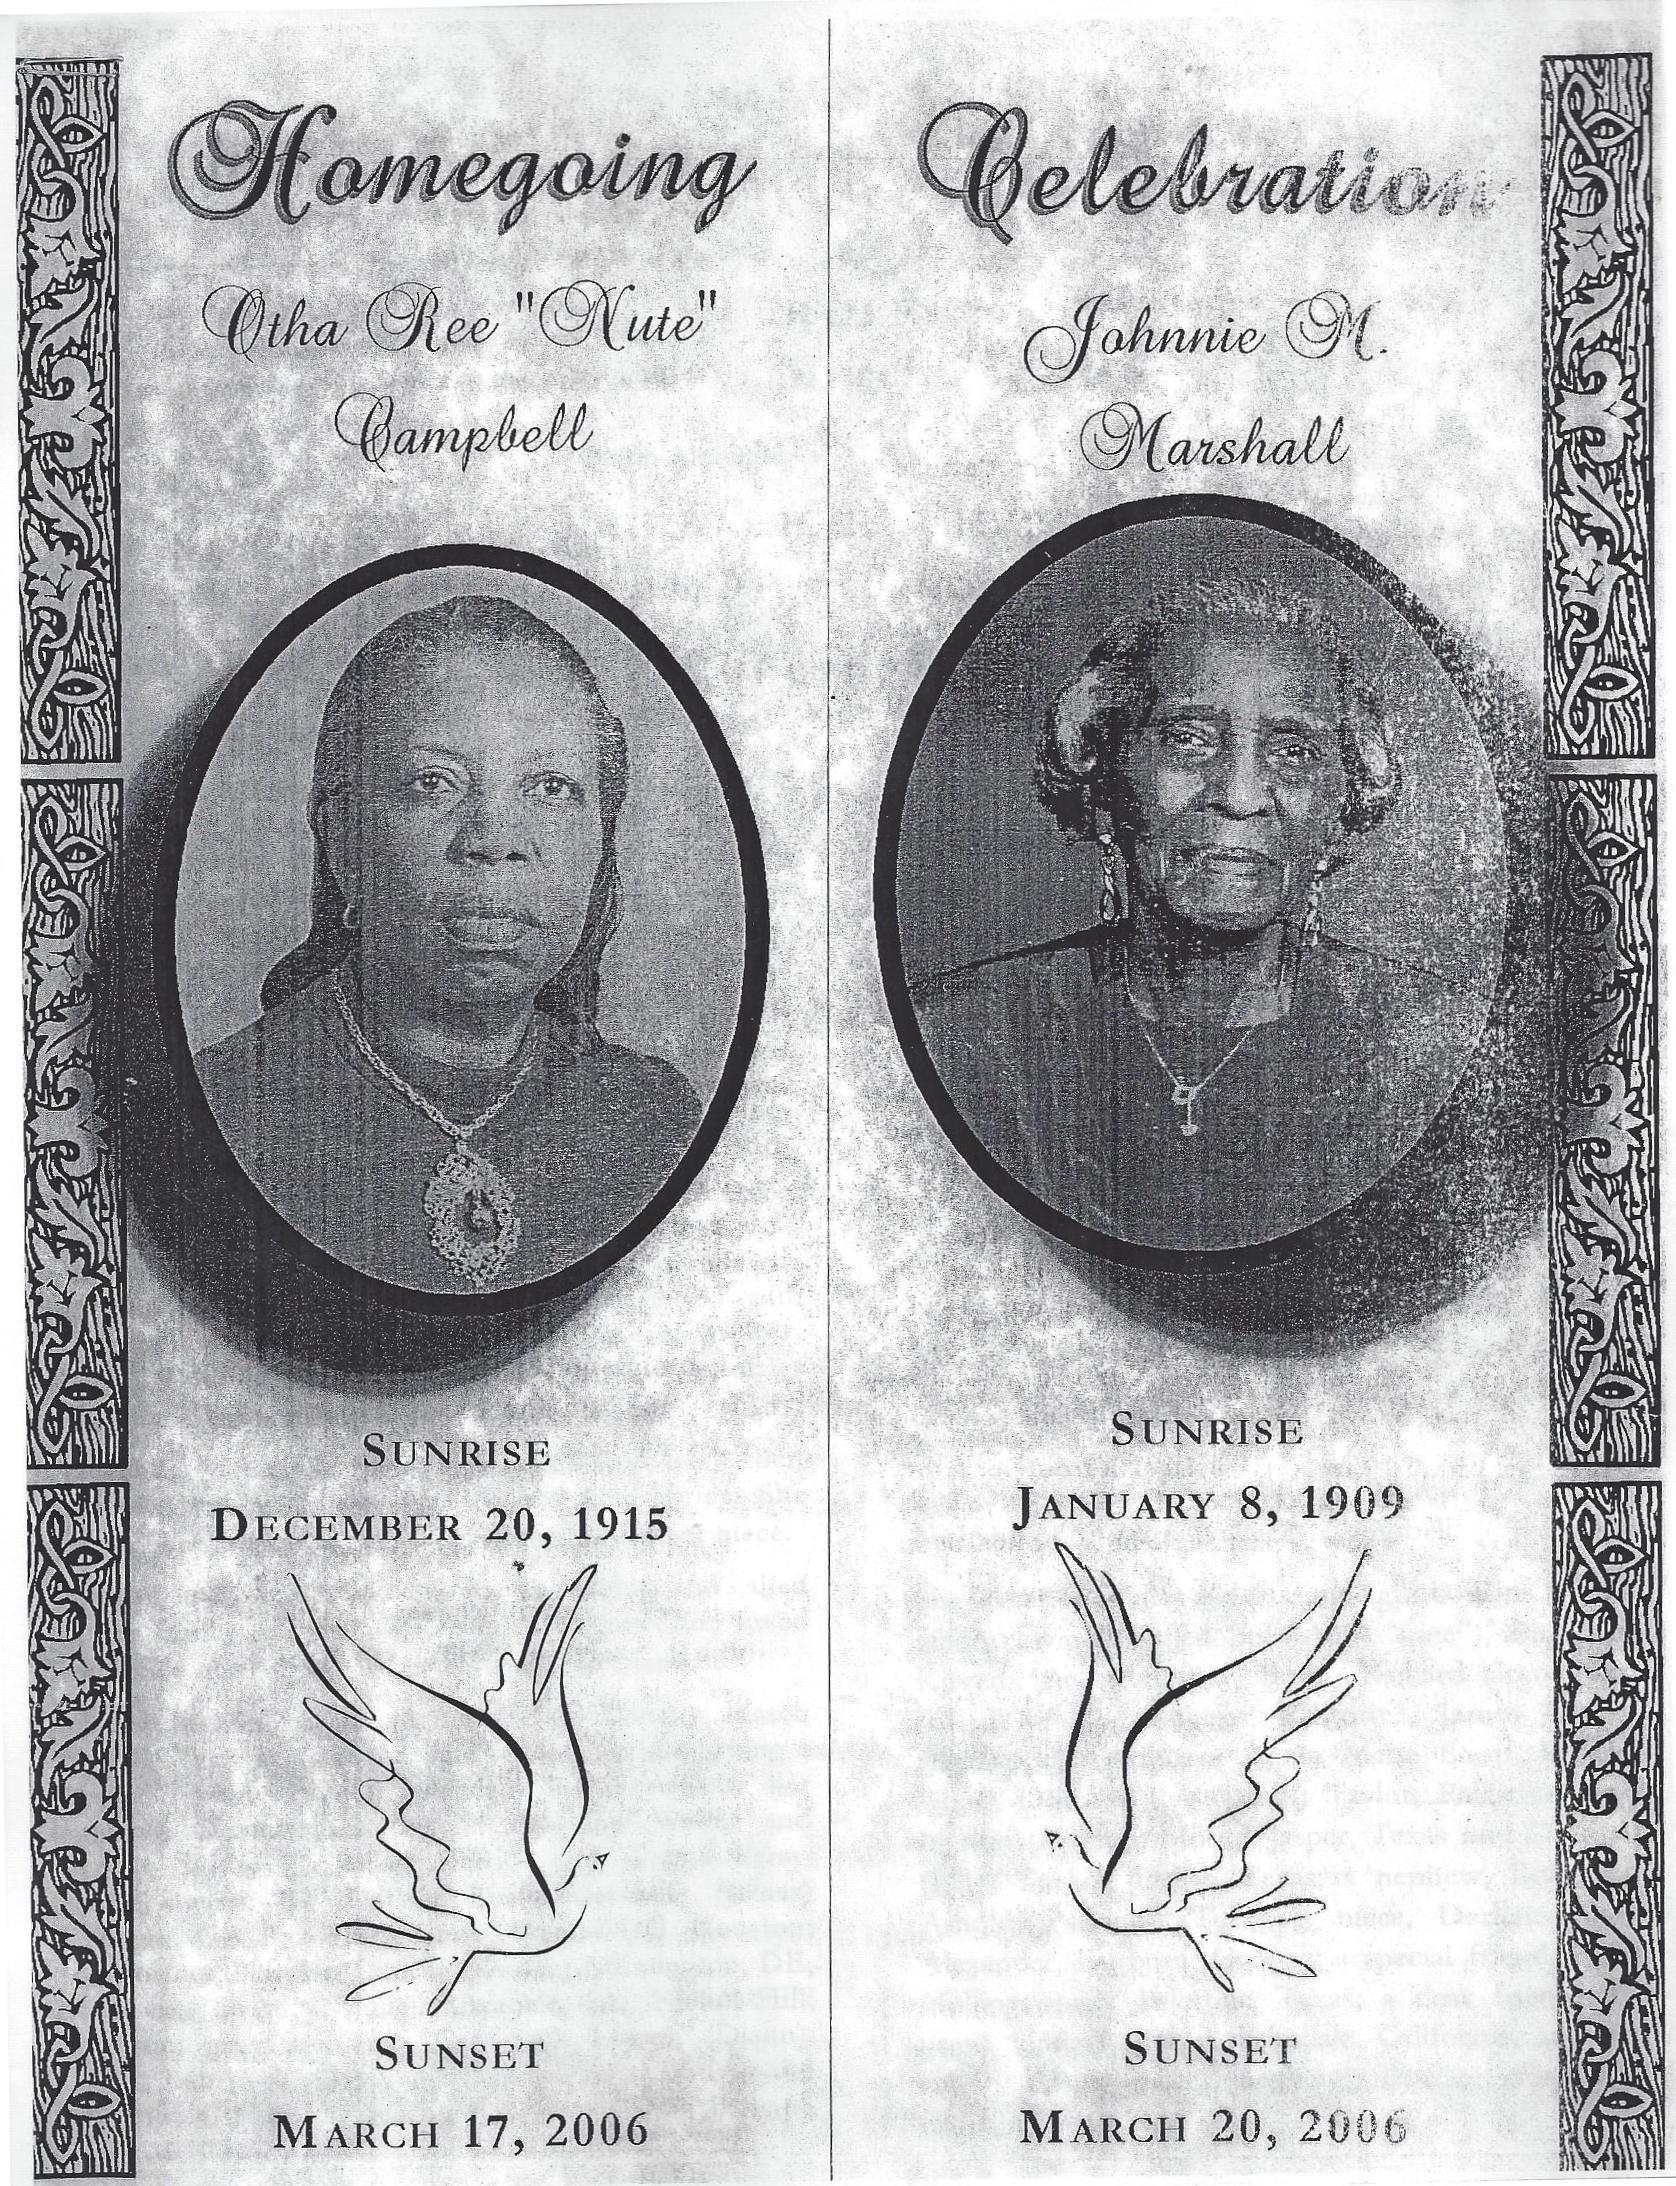 Homegoing
Otha Ree "Nute"
Campbell
SUNRISE
DECEMBER 20, 1915
SUNSET
MARCH 17, 2006
Celebration
Johnnie M.
Marshall
SUNRISE
JANUARY 8, 1909
SUNSET
MARCH 20, 2006